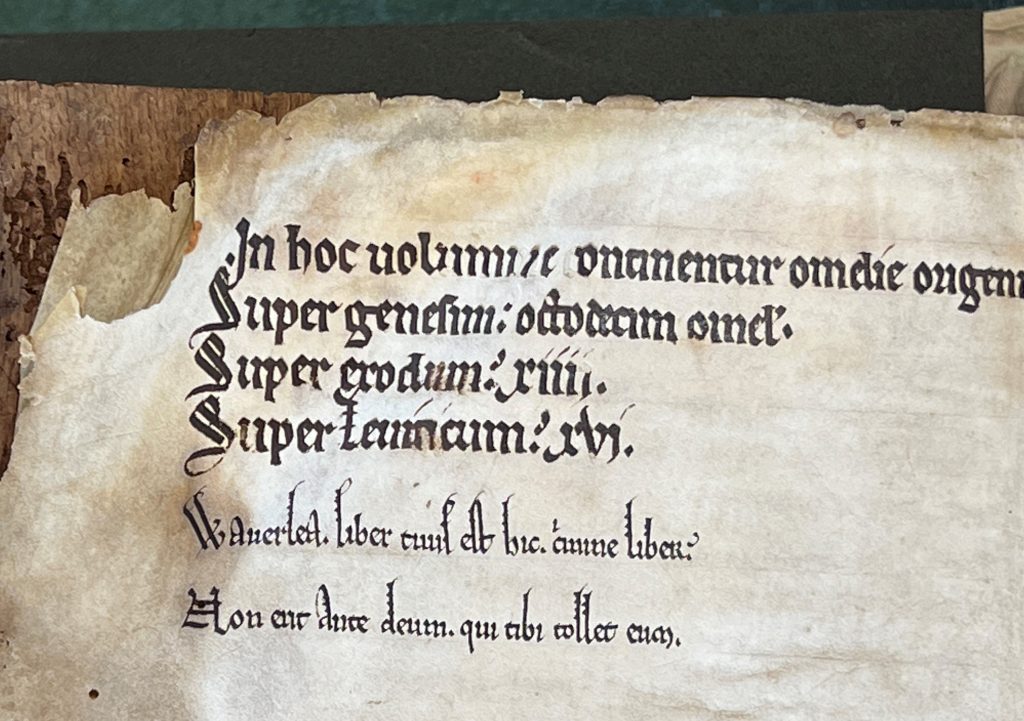 .In hoc uolumine ontinentur omelie origeni
Super genesim: octodecim omel'.
Super exodum: xiiij.
Super leuiticum: xvj.
Wauerlea. liber tuus est hic. cͥmine liber:
Non erit ante deum. qui tibi tollet eum.